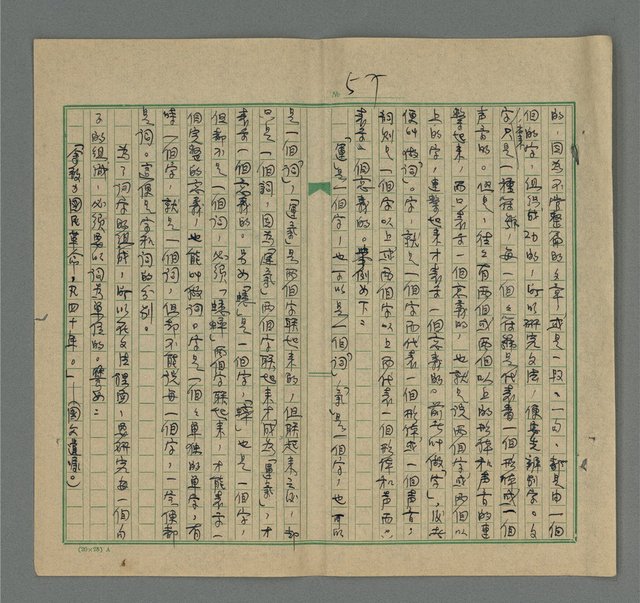 No 5下
的，因為不管整篇的文章，或是一段、一句，都是由一個
個的字，組織成功的，所以研究文法，便要先辨別字。文
字只是一種符號，每一個文字符號是代表着一個形體或一個
聲音的。但是，往往有兩個或兩個以上的形體和聲音的連
繫起來，而只表示一個意義的，也就是說兩個字或兩個以
上的字，連繫起來才表示一個意義的。前者叫做「字」，後者
便叫做「詞」。字，就是一個字而代表一個形體或一個聲音，
詞則是一個字以上或兩個字以上而代表一個形體和聲而
表示一個意義的。舉例如下：
「運」是一個字，也可以是一個「詞」，「氣」是一個字，也可以
是一個「詞」，「運氣」是兩個字聯起來的，但聯起來之後，却
只是一個詞，因為「運氣」兩個字聯起來才成為「運氣」，才
表示一個意義的。另如「蟋」是一個字，「蟀」也是一個字，
但却不是一個詞，必須「蟋蟀」兩個字聯起來，才能表示一
個完整的意義，也能叫做詞。字是一個個單獨的單字，有
時一個字，就是一個詞，但却不能說每一個字，一定便都
是詞。這便是字和詞的分別。
為了詞字的組成，所以在文法裡面，要研究每一個句
子的組織，必須要以詞為單位的。譬如：
「余致力國民革命，凡四十年。」——（國父遺囑。）
(20×25) A
6